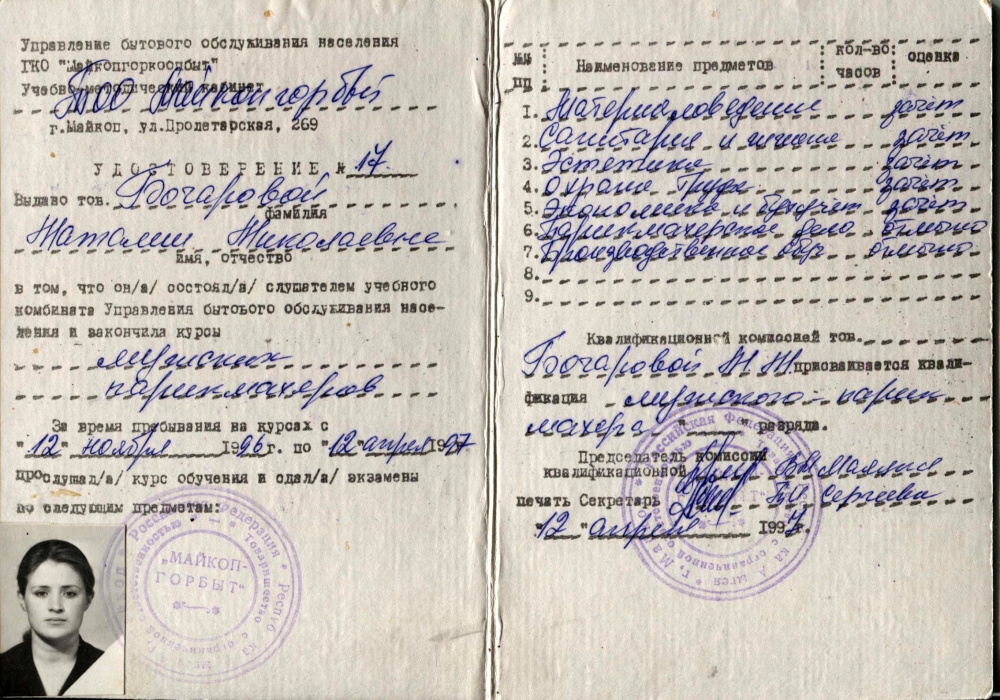 Управление бытового обслуживания населения
ГКО "Майкопгоркоопбыт"
Учебно-методический кабинет
ТОО Майкопгорбыт
г.Майкоп, ул.Пролетарская, 269
УДОСТОВЕРЕНИЕ № 17
Выдано тов. Бочаровой
фамилия
Наталии Николаевне
имя, отчество
в том, что он/а/ состоял/а/ слушателем учебного
комбината Управления бытового обслуживания насе-
ления и закончила курсы
мужских
парикмахеров
За время пребывания на курсах с
"12" ноября 1996г. по "12" апреля 1997
прослушал/а/ курс обучения и сдал/а/ экзамены
по следующим предметам:
"МАЙКОП-
ГОРБЫТ"
№№ пп Наименование предметов кол-во часов оценка
1. Материаловедение зачёт
2. Санитария и гигиена зачёт
3. Эстетика зачёт
4. Охрана труда зачёт
5. Экономика и бухучёт зачёт
6. Парикмахерское дело отлично
7. Производственное обр. отлично
8.
9.
Квалификационной комиссией тов.
Бочаровой Н.Н. присваивается квали-
фикация мужского парик
махера " " разряда.
Председатель комиссии
квалификационной
печать Секретарь Сергеева
"12" апреля 1997г.